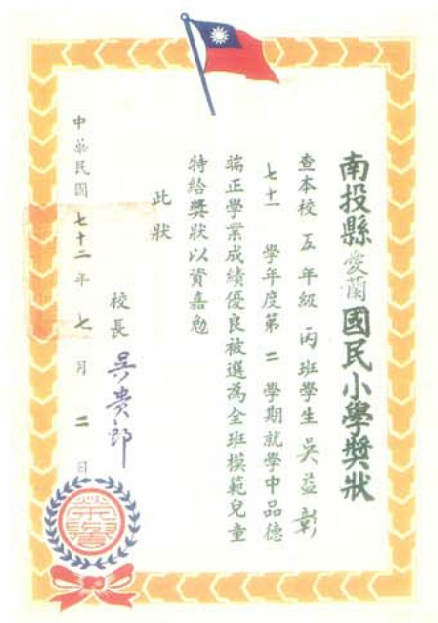 南投縣愛蘭國民小學獎狀
查本校五年級丙班學生吳益彰
七十一學年度第二學期就學中品德
端正學業成績優良被選為全班模範兒童
特給獎狀以資嘉勉
此狀
校長 吳貴郎
中華民國七十二年七月二日
榮譽